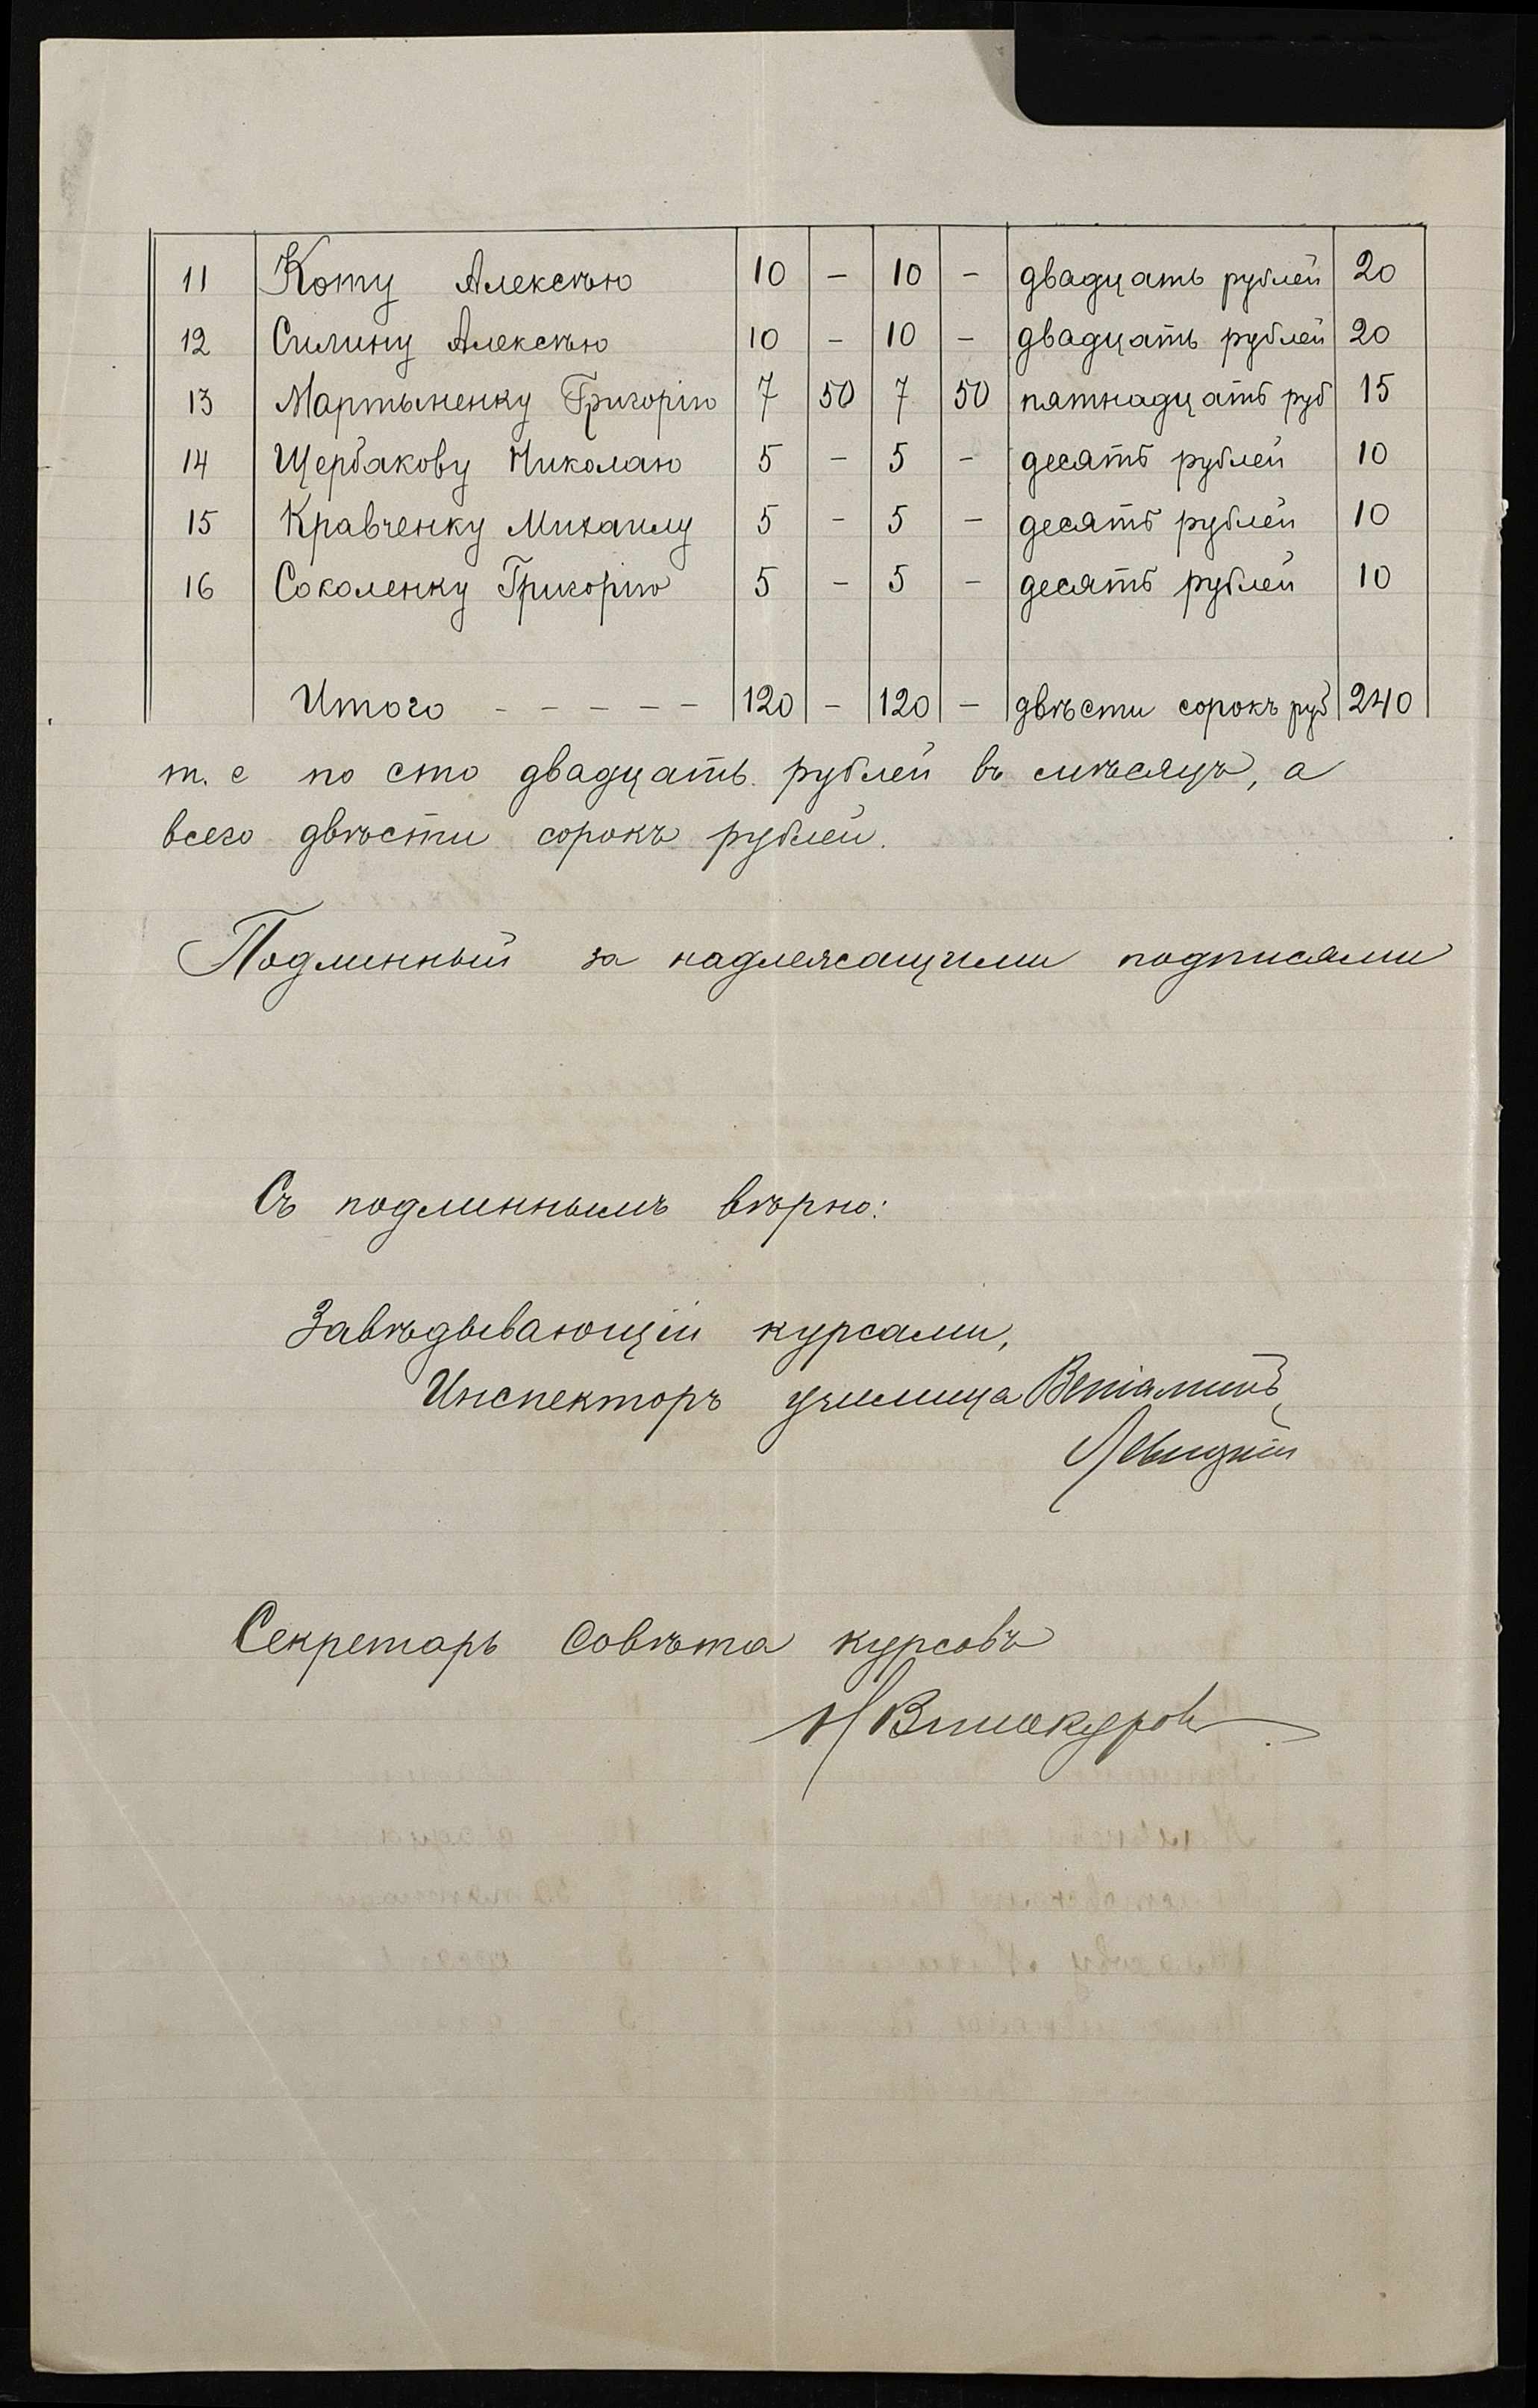 11 Коту Алексѣю 10 – 10 – двадцать рублей 20
12 Силину Алексѣю 10 – 10 – двадцать рублей 20
13 Мартыненку Григорію 7 50 7 50 пятнадцать руб 15
14 Щербакову Николаю 5 – 5 – десять рублей 10
15 Кравченку Михаилу 5 – 5 – десять рублей 10
16 Соколенку Григорію 5 – 5 – десять рублей 10
Итого - - - - - 120 – 120 – двѣсти сорокъ руб 240
т. е по сто двадцать рублей въ мѣсяцъ, а
всего двѣсти сорокъ рублей.
Подлинный за надлежащими подписями
Съ подлиннымъ вѣрно:
Завѣдывающій курсами,
Инспекторъ училища Веніаминъ
Левицкій
Секретарь Совѣта курсовъ
Н Винокуровъ